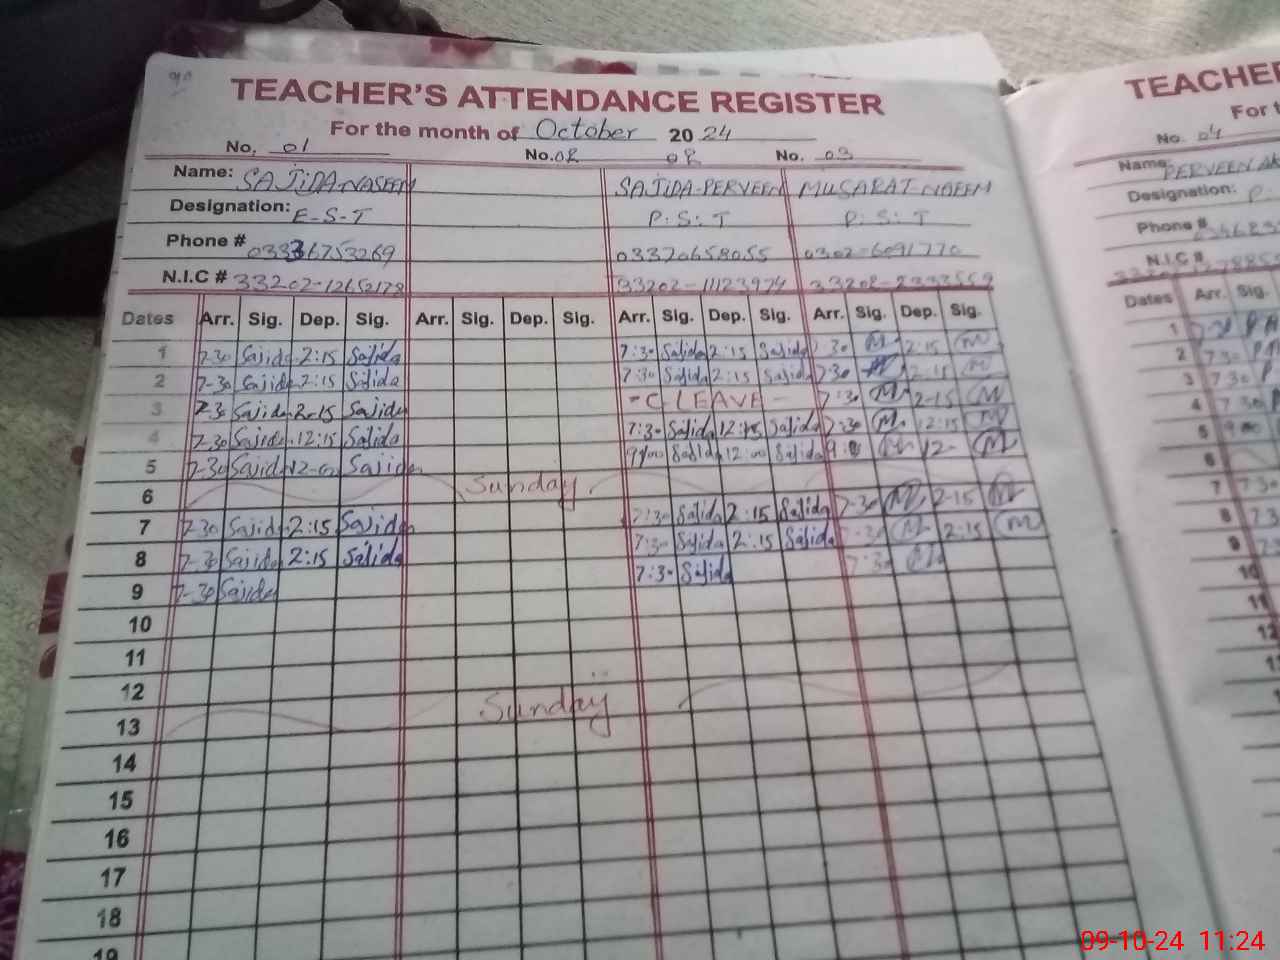 TEACHER'S ATTENDANCE REGISTER
For the month of October 20 24
No. 01 No. 02 02 No. 03
Name: SAJIDA-NASEEM SAJIDA-PERVEEN MUSARAT-NAEEM
Designation: E-S-T P:S:T P:S:T
Phone # 03336753269 03370658055 0302-6091770
N.I.C # 33202-1265217 33202-11123974 33202-2333559
Dates Arr. Sig. Dep. Sig. Arr. Sig. Dep. Sig. Arr. Sig. Dep. Sig. Arr. Sig. Dep. Sig.
1 7-30 Sajida 2:15 Sajida 7:30 Sajida 2:15 Sajida 7:30 M 2:15 M
2 7-30 Sajida 2:15 Sajida 7:30 Sajida 2:15 Sajida 7:30 M 2-15 M
3 7-30 Sajida 2-15 Sajida -C-LEAVE- 7:30 M 2-15 M
4 7-30 Sajida 12:15 Sajida 7:30 Sajida 12:15 Sajida 7:30 M 12:15 M
5 7-30 Sajida 12-00 Sajida 9:00 Sajida 12:00 Sajida M 12- M
6 Sunday
7 7-30 Sajida 2:15 Sajida 7:30 Sajida 2:15 Sajida 7-30 M 2-15 M
8 7-30 Sajida 2:15 Sajida 7:30 Sajida 2:15 Sajida 7:30 M 2:15 M
9 7-30 Sajida 7:30 Sajida 7:30 M
10
11
12
13 Sunday
14
15
16
17
18
19
TEACHER
For t
No. 04
Name: PERVEEN AK
Designation: P.
Phone #
N.I.C #
Dates Arr. Sig.
1
2 7:30
3 7:30
4 7:30
5 9:00
6
7 7:30
8 7:3
9
10
11
12
09-10-24 11:24